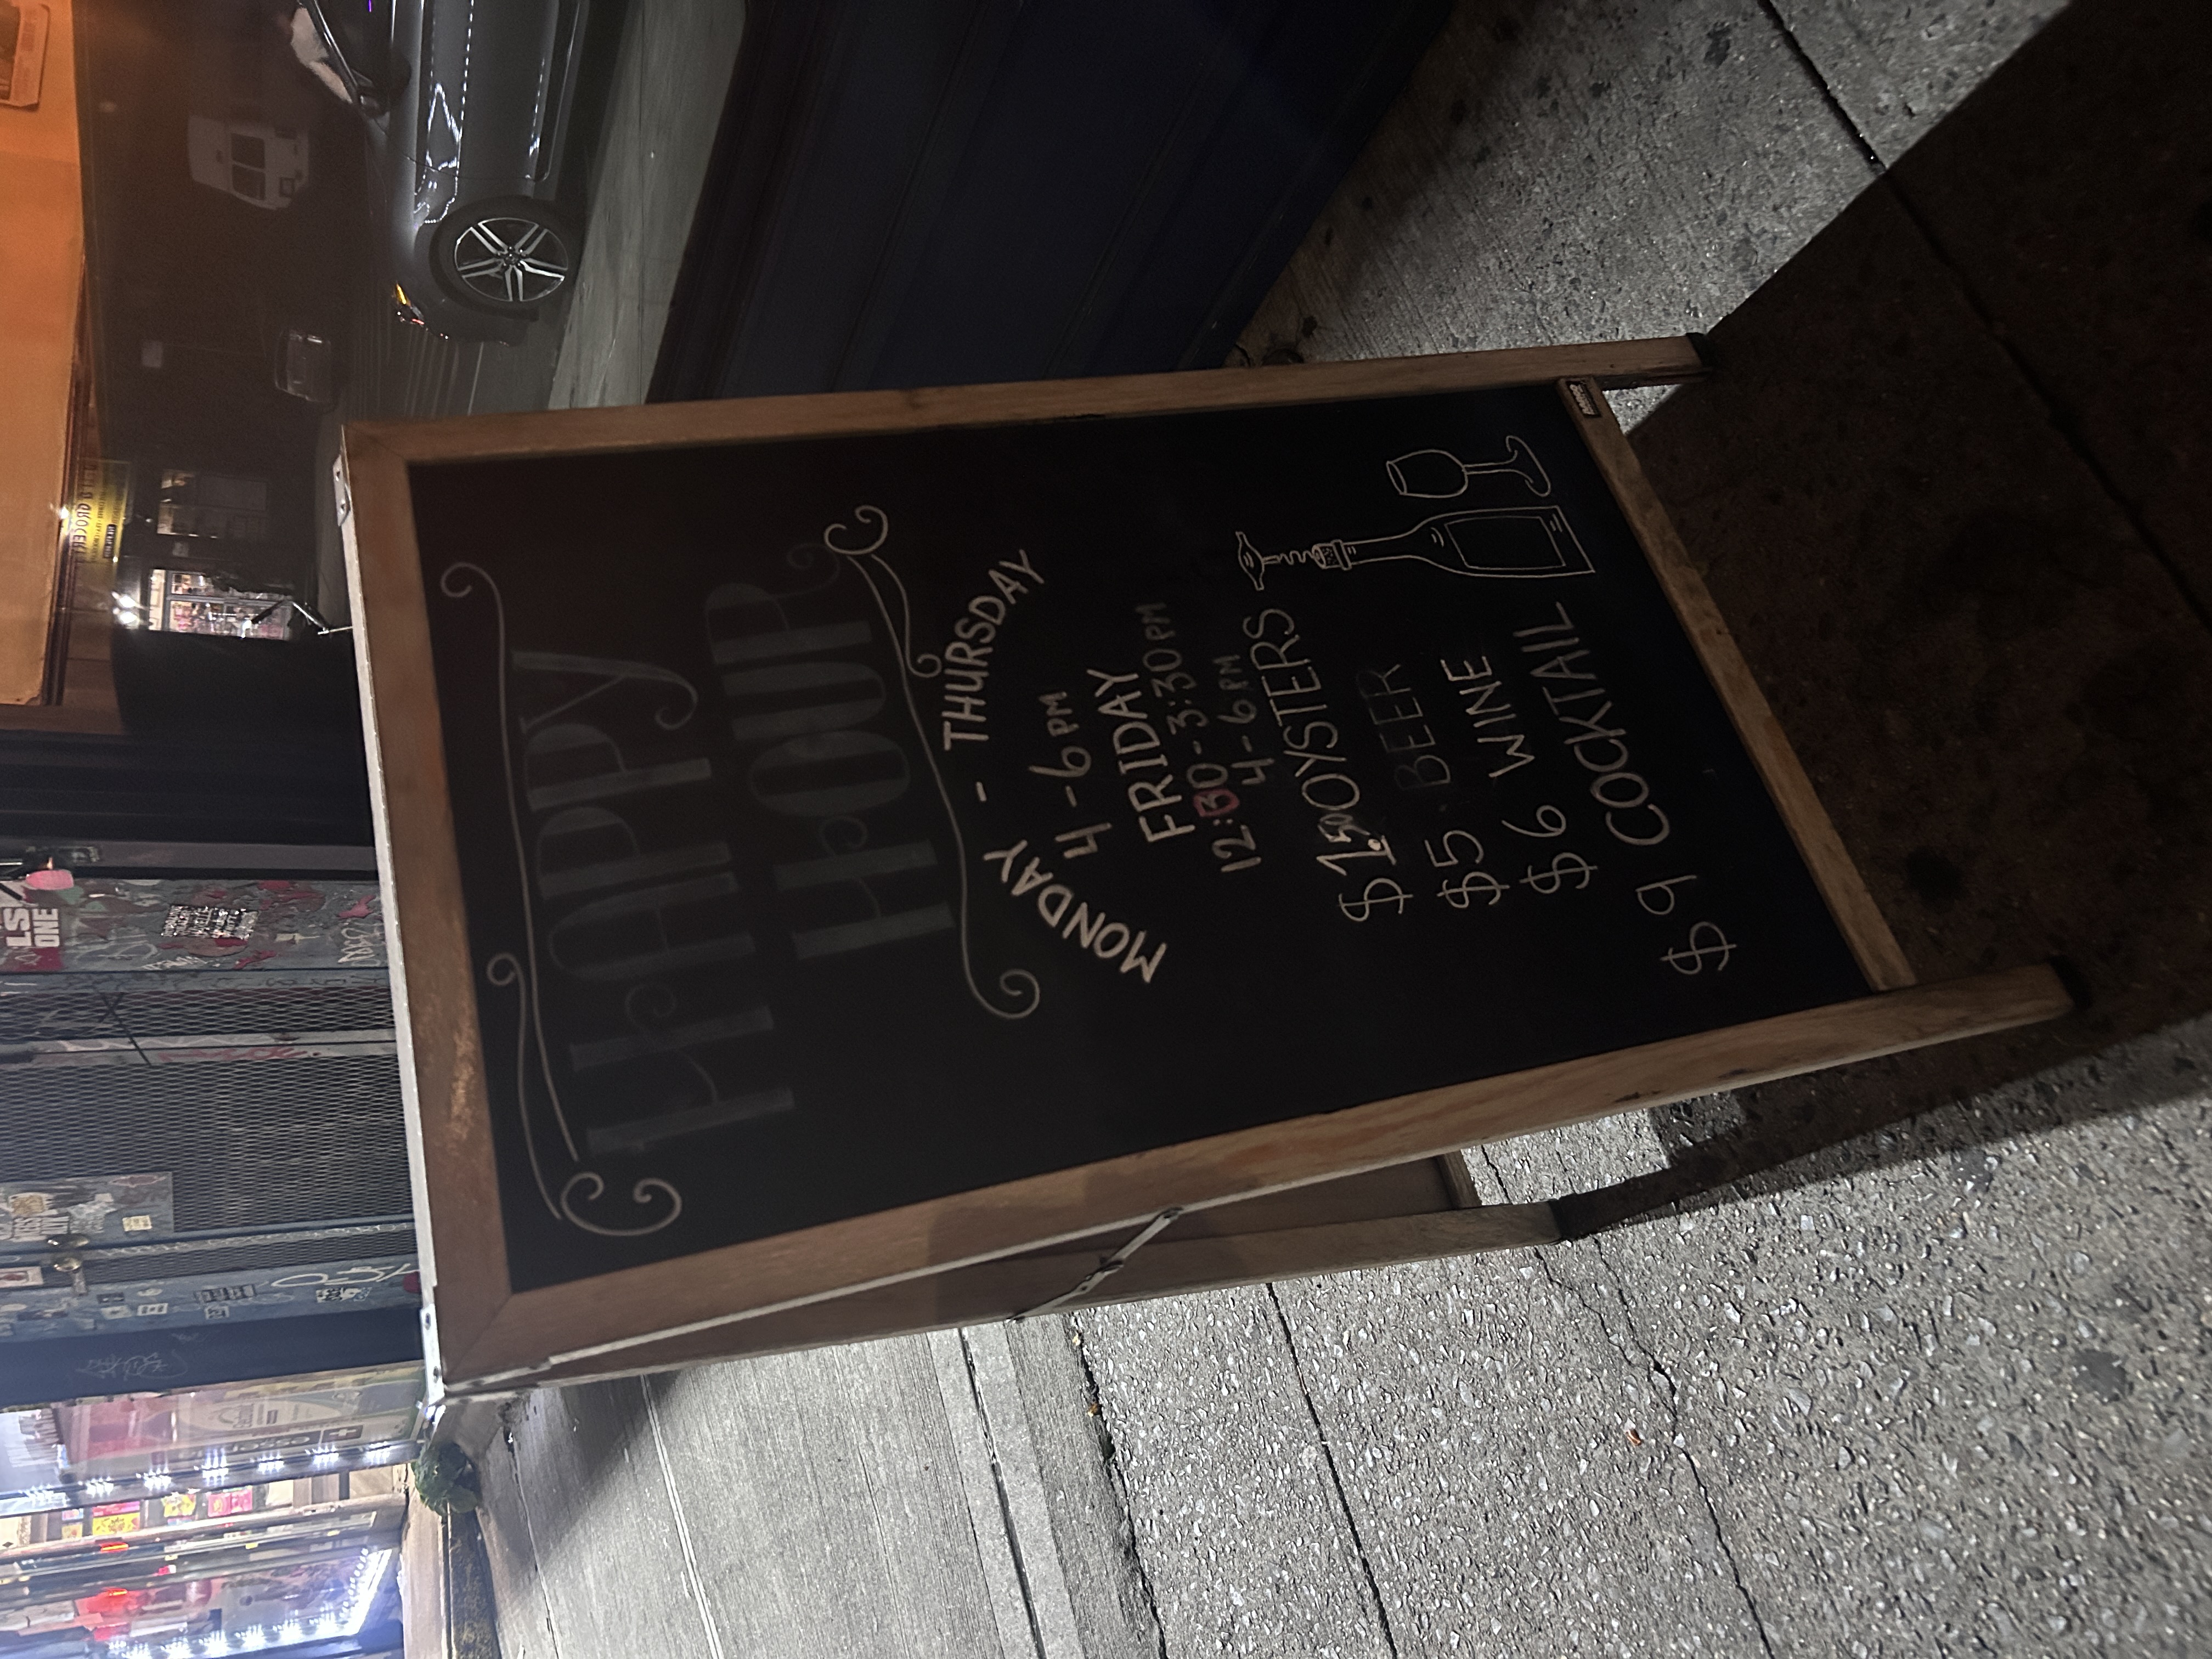 HAPPY
HOUR
MONDAY - THURSDAY
4 - 6 PM
FRIDAY
12:30 - 3:30 PM
4 - 6 PM
$1.50 OYSTERS
$5 BEER
$6 WINE
$9 COCKTAIL
LS
ONE